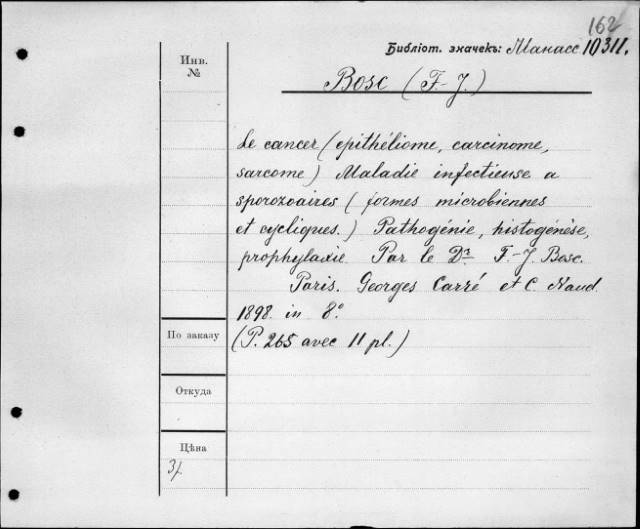 162
Библіот. значекъ: Манасс 10311.
Инв.
№
Bosc (F.-J.)
Le cancer (epithéliome, carcinome,
sarcome) Maladie infectieuse a
sporozoaires (formes microbiennes
et cycliques.) Pathogénie, histogénèse,
prophylaxie Par le Dr F.-J. Bosc.
Paris. Georges Carré et C. Naud.
1898. in 8º.
По заказу
(P. 265 avec 11 pl.)
Откуда
Цѣна